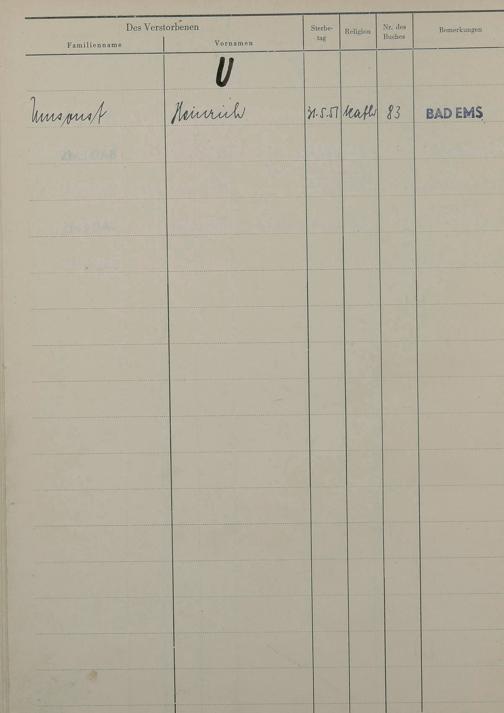 Des Verstorbenen
Familienname Vornamen Sterbe-tag Religion Nr. des Buches Bemerkungen
U
Umsonst Heinrich 31.5.51 kath 83 BAD EMS